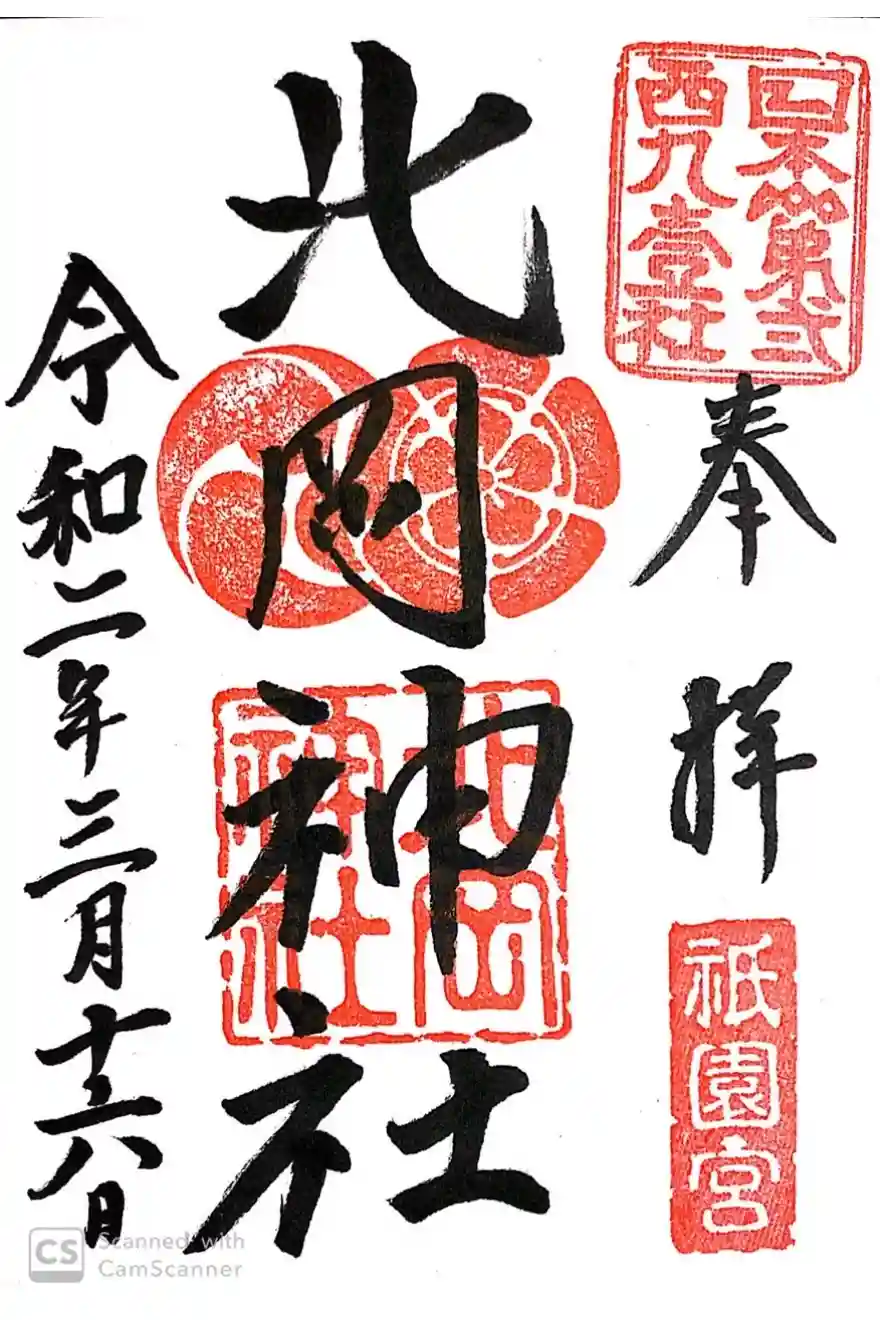 日本第弐
西九壹社
奉拝
祇園宮
北岡神社
北岡
神社
令和二年三月十六日
CS Scanned with
CamScanner